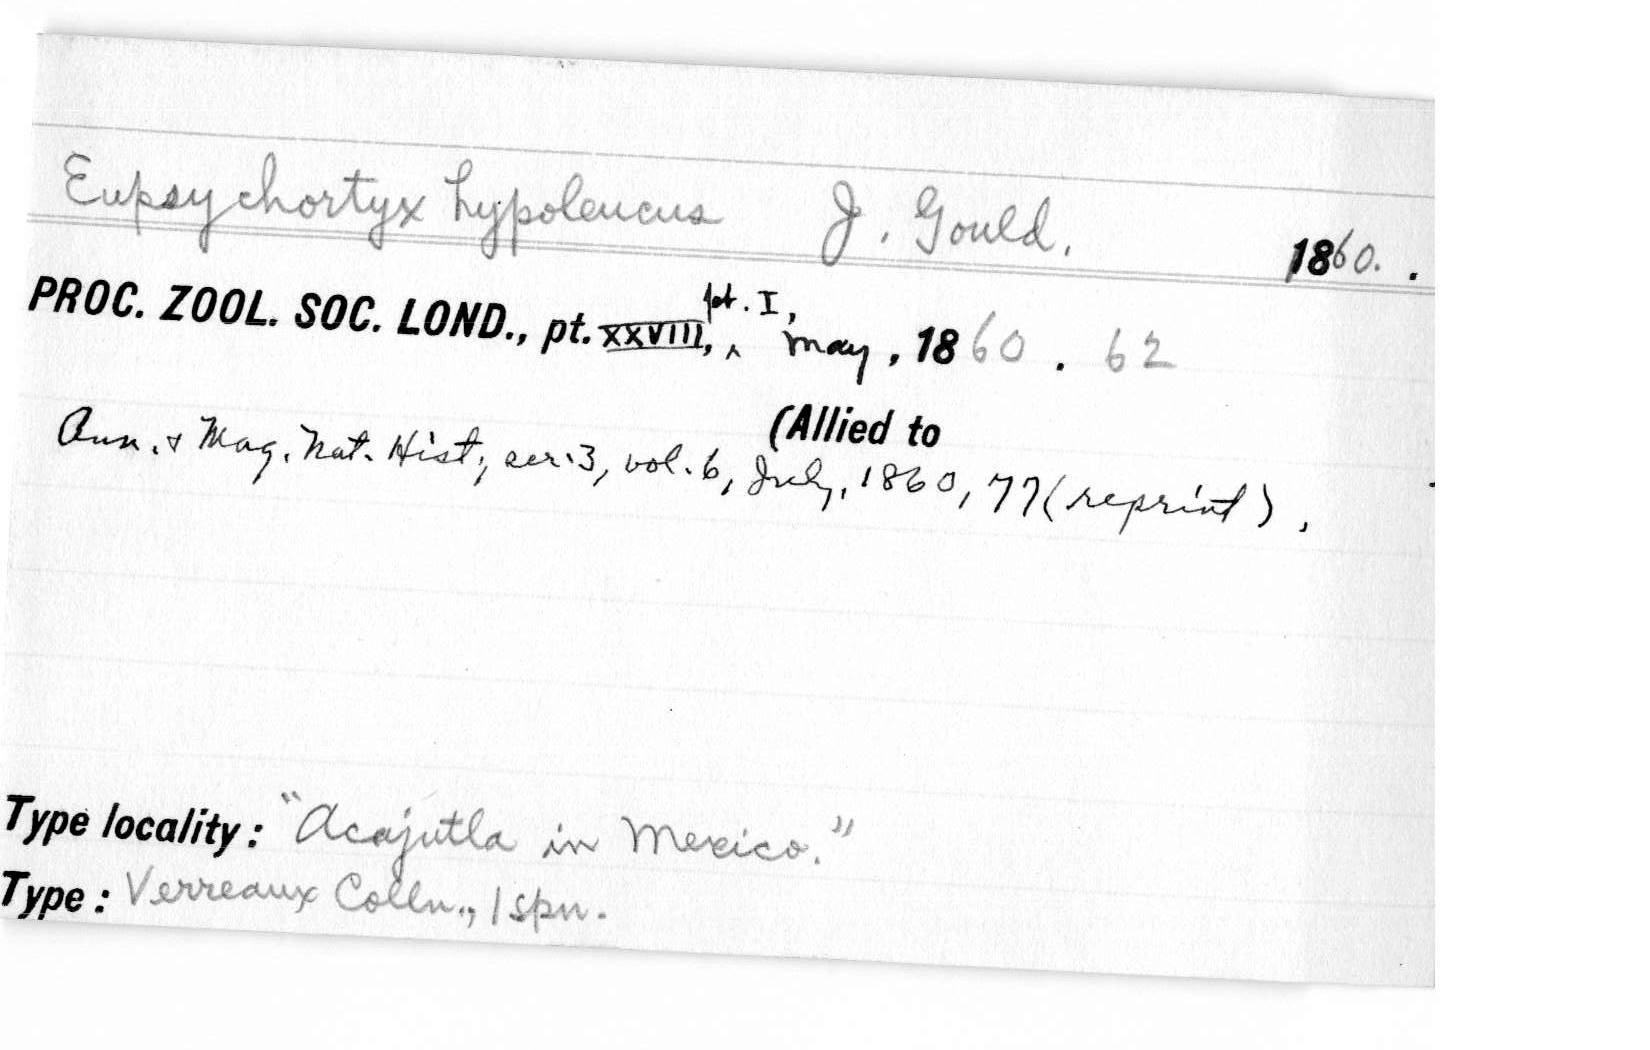 Eupsychortyx hypoleucus J. Gould. 1860. .
PROC. ZOOL. SOC. LOND., pt. XXVIII, pt. I, May, 1860 . 62
(Allied to
Ann. & Mag. Nat. Hist., ser. 3, vol. 6, July, 1860, 77 (reprint).
Type locality: "Acajutla in Mexico."
Type: Verreaux Colln., 1 spn.